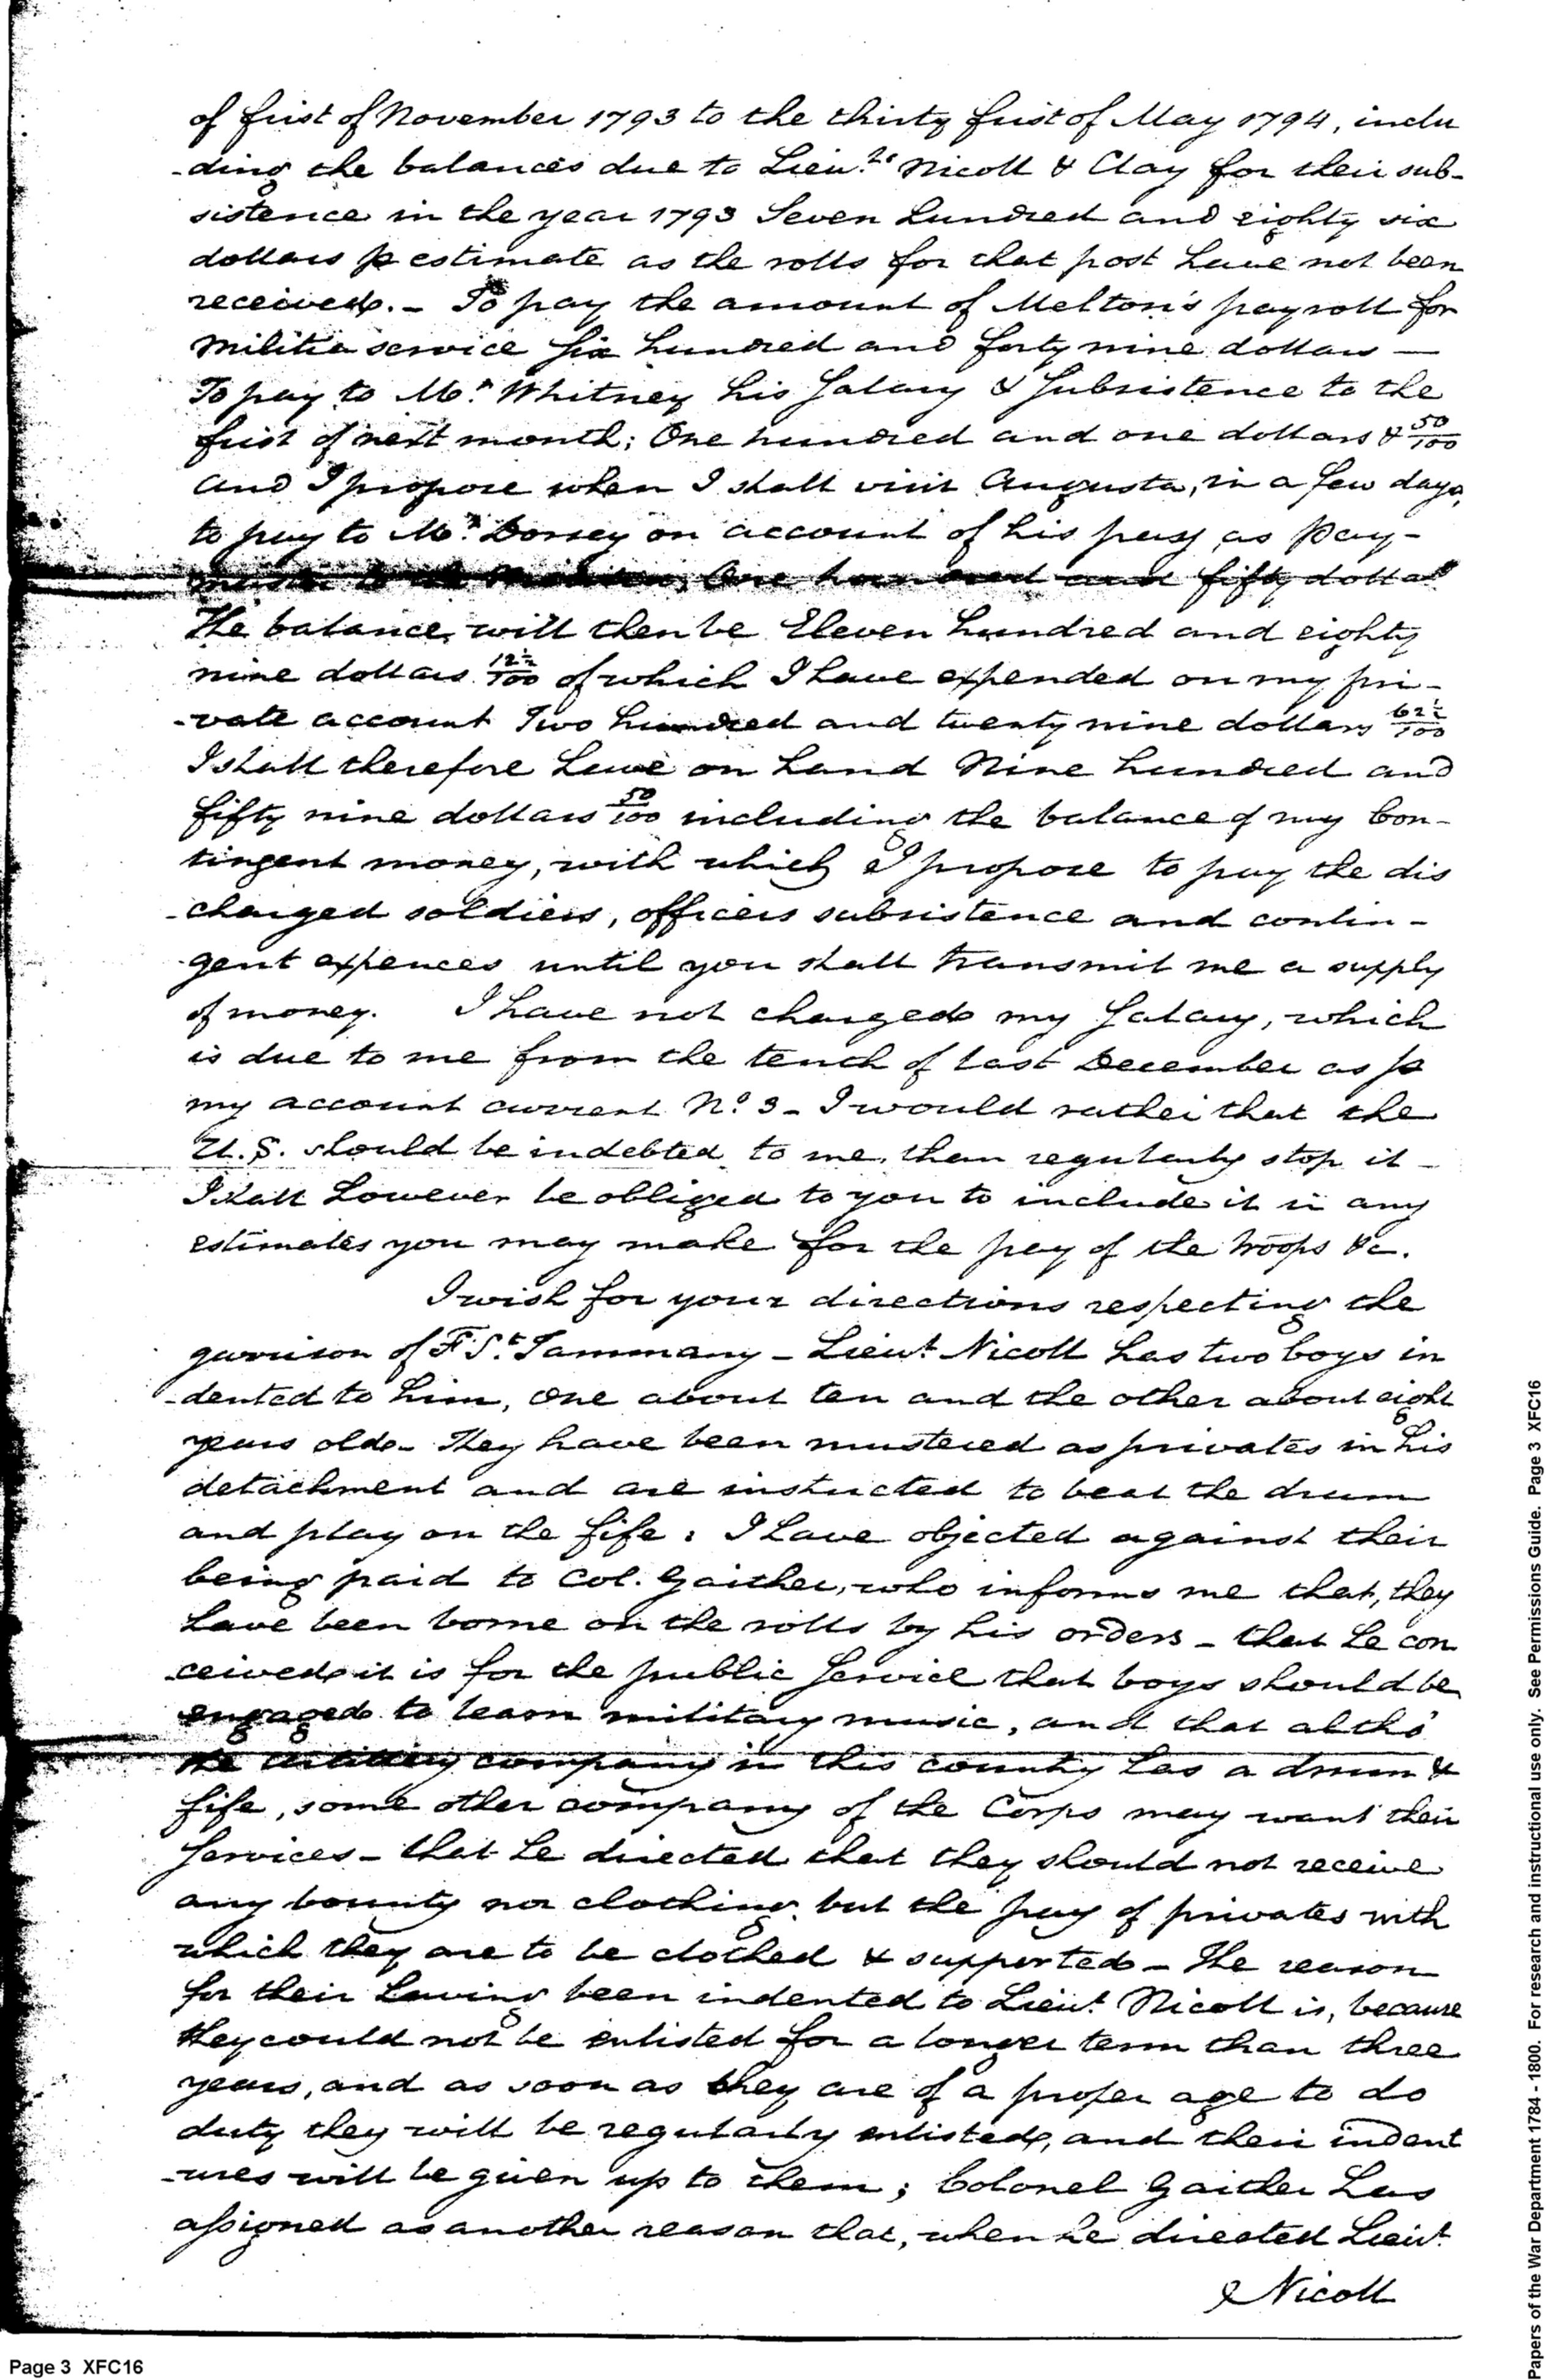 of first of November 1793 to the thirty first of May 1794, inclu
-ding the balances due to Lieu.ts Nicoll & Clay for their sub-
sistence in the year 1793 Seven hundred and eighty six
dollars p estimate as the rolls for that post have not been
received. - To pay the amount of Melton's payroll for
militia service Six hundred and forty nine dollars —
To pay to Mr. Whitney his Salary & Subsistence to the
first of next month; One hundred and one dollars & 50/100
and I propose when I shall visit Augusta, in a few days,
to pay to Mr. Dorsey on account of his pay as Pay-
master to the Militia, One hundred and fifty dollars
The balance, will then be Eleven hundred and eighty
nine dollars 12½/100 of which I have expended on my pri-
-vate account Two hundred and twenty nine dollars 62½/100
I shall therefore have on hand Nine hundred and
fifty nine dollars 50/100 including the balance of my Con-
tingent money, with which I propose to pay the dis
-charged soldiers, officers subsistence and contin-
-gent expences until you shall transmit me a supply
of money. I have not charged my Salary, which
is due to me from the tenth of last December as p
my account current No. 3 - I would rather that the
U.S. should be indebted to me, than regularly stop it -
I shall however be obliged to you to include it in any
estimates you may make for the pay of the troops &c.
I wish for your directions respecting the
garrison of F St. Tammany - Lieut. Nicoll has two boys in
-dented to him, one about ten and the other about eight
years old - They have been mustered as privates in his
detachment and are instructed to beat the drum
and play on the fife: I have objected against their
being paid to Col. Gaither, who informs me that, they
have been borne on the rolls by his orders - that he con
-ceived it is for the public Service that boys should be
engaged to learn military music, and that altho'
the artillery company in this country has a drum &
fife, some other company of the Corps may want their
Services - that he directed that they should not receive
any bounty nor clothing, but the pay of privates with
which they are to be clothed & supported - The reason
for their having been indented to Lieut. Nicoll is, because
they could not be enlisted for a longer term than three
years, and as soon as they are of a proper age to do
duty they will be regularly enlisted, and their indent
-ures will be given up to them; Colonel Gaither has
assigned as another reason that, when he directed Lieut.
Nicoll
Page 3 XFC16
Papers of the War Department 1784 - 1800. For research and instructional use only. See Permissions Guide. Page 3 XFC16